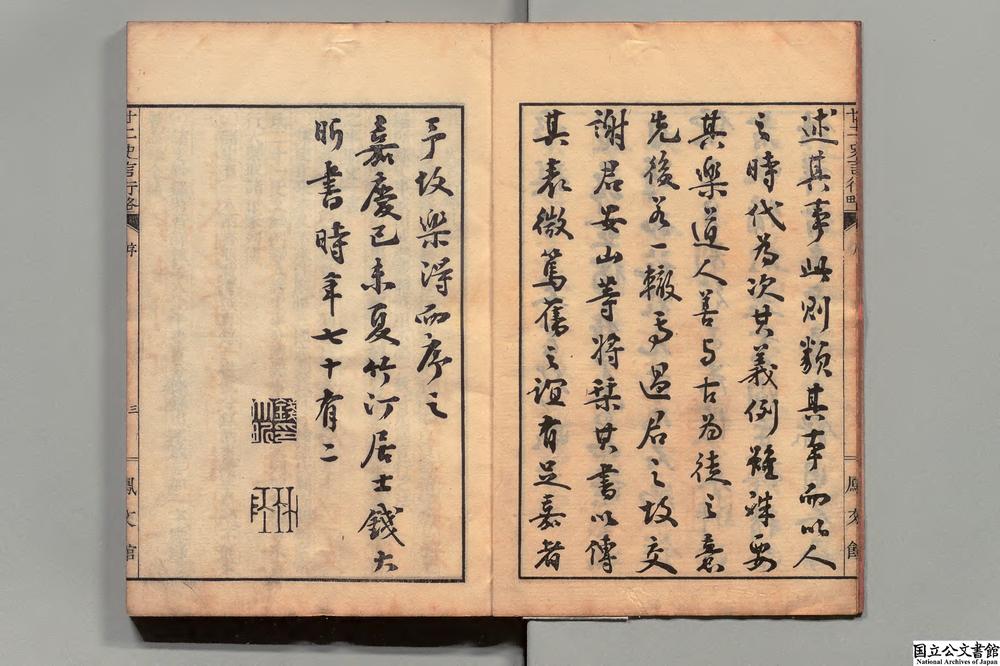 述其事此則類其事而以人
之時代為次其義例雖殊要
其樂道人善与古為徒之意
先後若一轍焉過君之故交
謝君安山等将栞其書以傳
其表微篤舊之誼有足嘉者
廿二史言行略
序
鳳文館
予故樂得而序之
嘉慶己未夏竹汀居士錢大
昕書時年七十有二
廿二史言行略
序
三
鳳文館
国立公文書館
National Archives of Japan